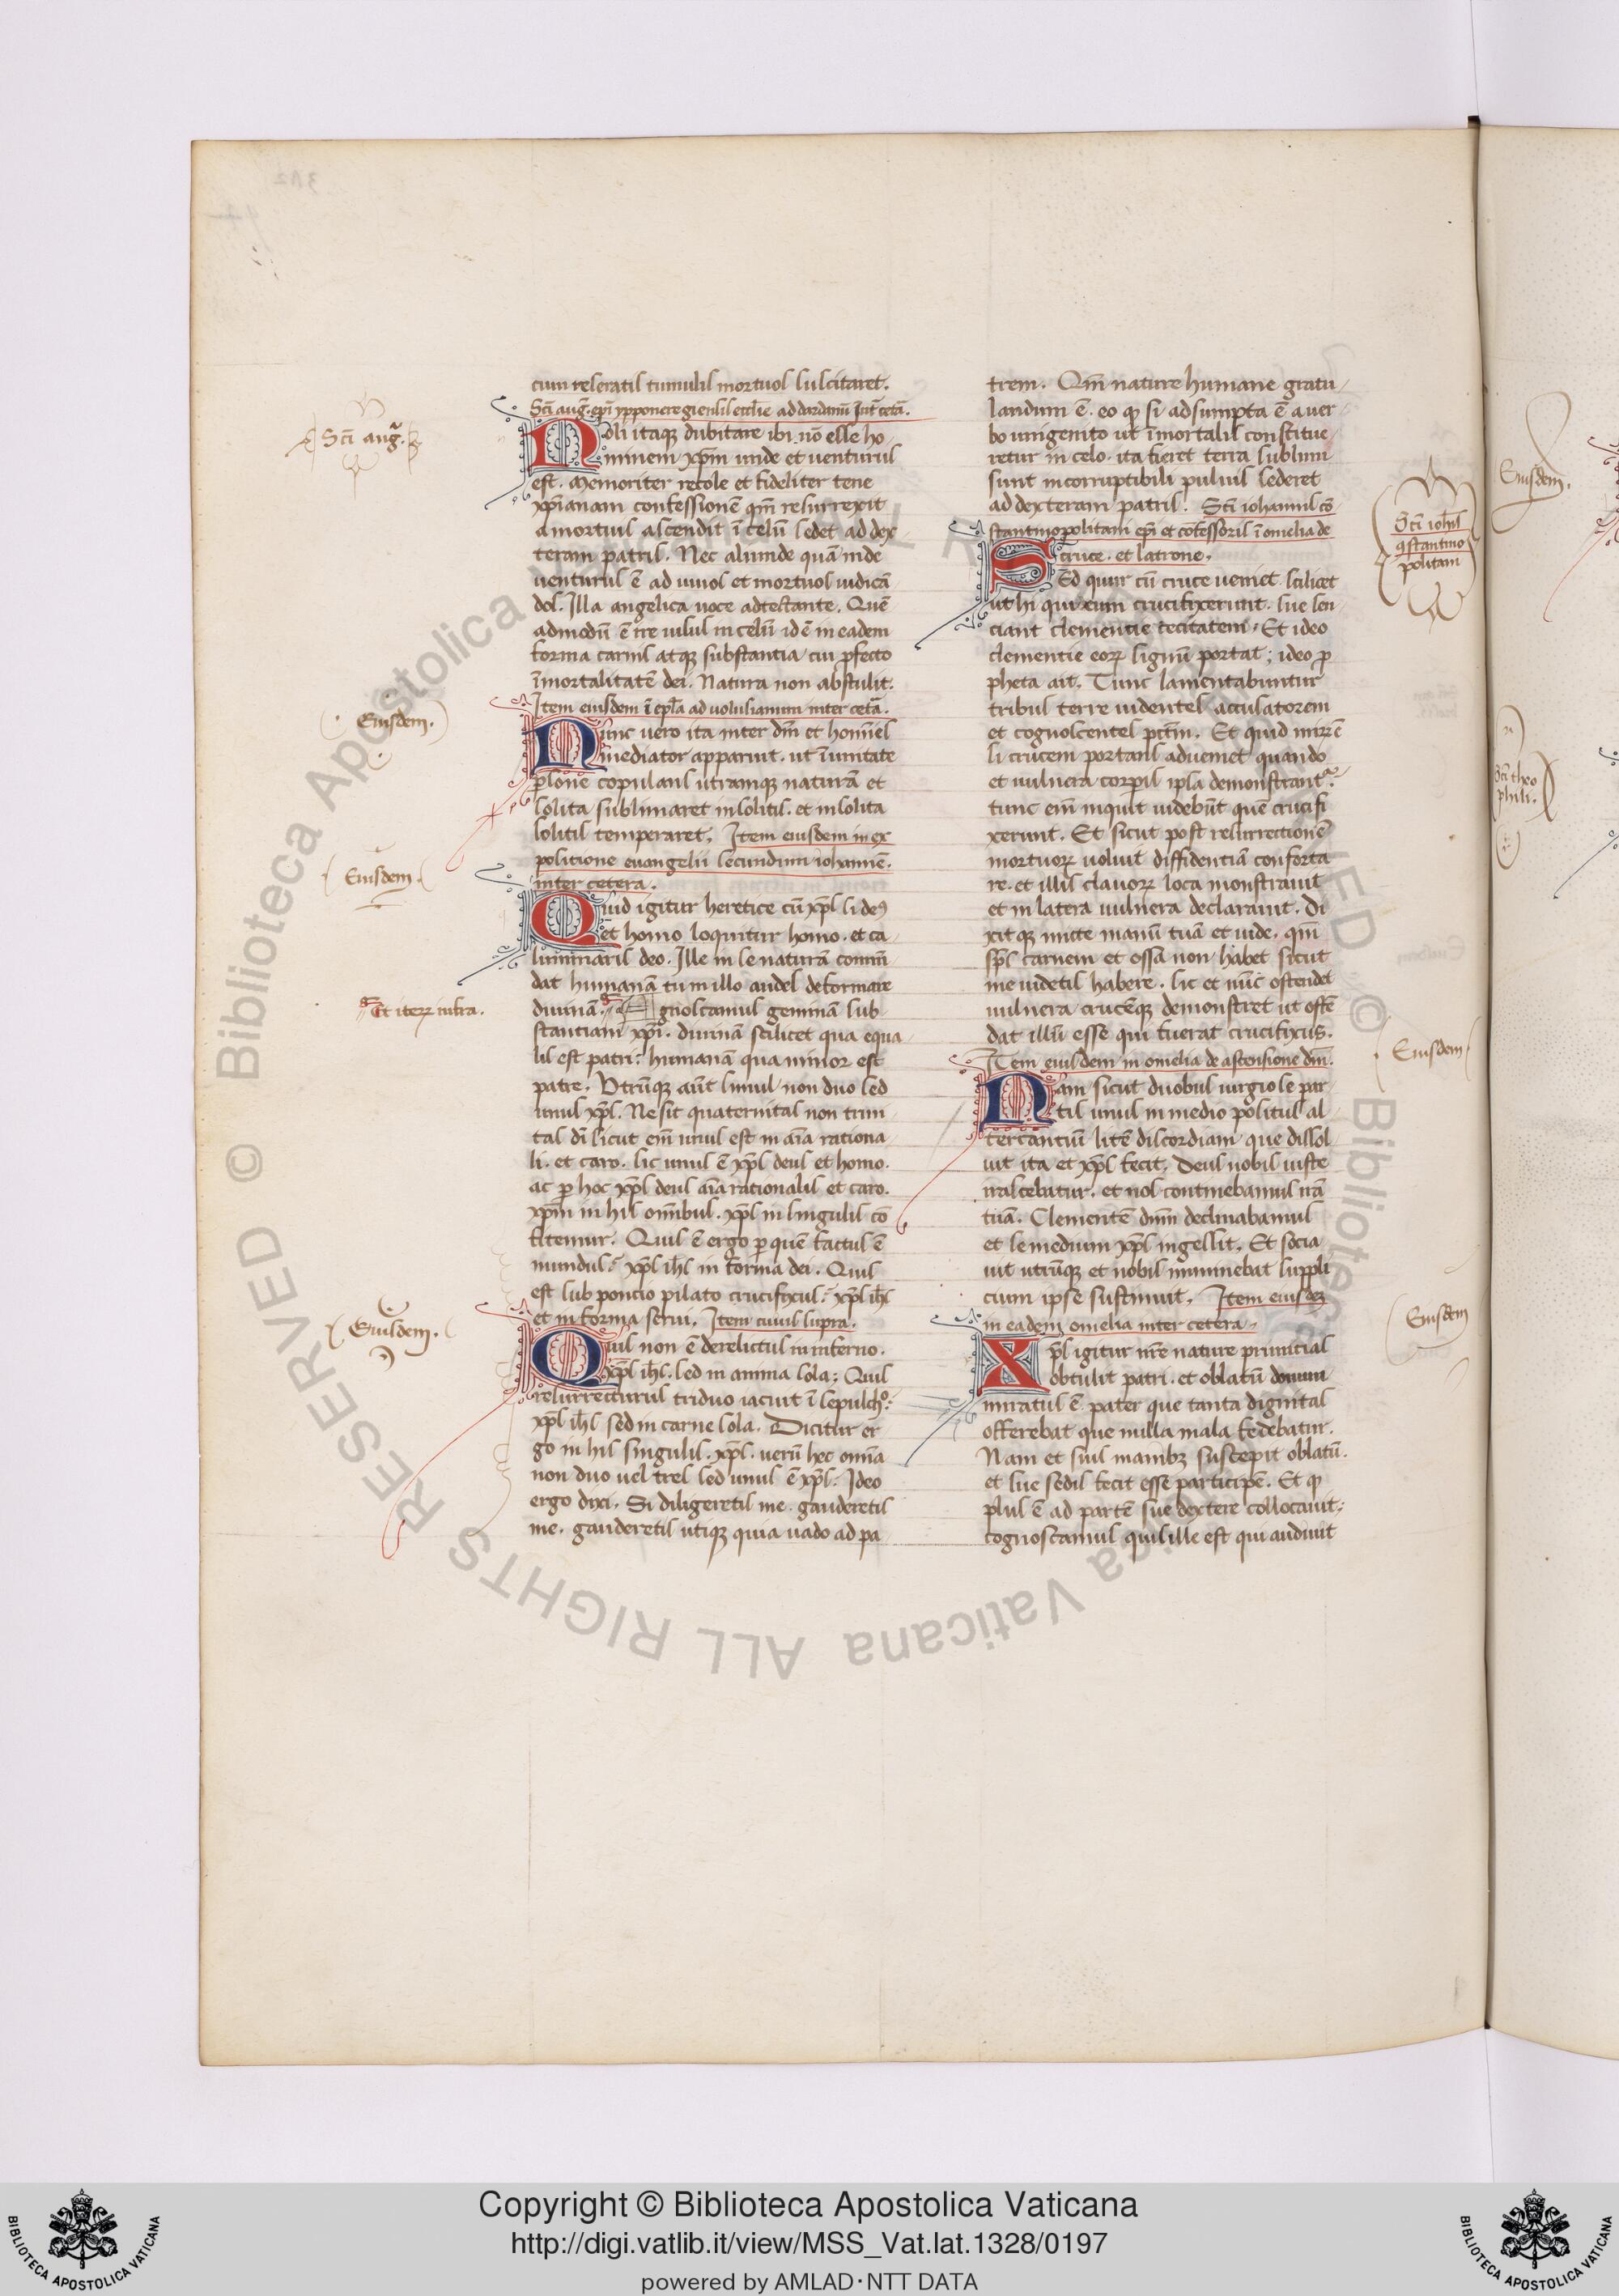 cum reseratis tumulis mortuos suscitaret.
Sci aug. epi ypponeregiensis ecclie ad dardanu Int ceta.
Noli itaqȝ dubitare ibi nō esse ho
minem xpm unde et uenturus
est. Memoriter recole et fideliter tene
xpianam confessionē qm resurrexit
a mortuis ascendit ī celū sedet ad dex
teram patris. Nec aliunde quā inde
uenturus ē ad uiuos et mortuos iudicā
dos. Illa angelica uoce adtestante. Quē
admodū ē ire uisus in celū id ē in eadem
forma carnis atqȝ substantia cui profecto
īmortalitatē dei. Natura non abstulit.
Item eiusdem ī epla ad uolusianum inter cetā.
Nunc uero ita inter dm et homies
mediator apparuit. ut ī unitate
psone copulans utramque naturā et
solita sublimaret insolitis. et insolita
solitis temperaret. Item eiusdem in ex
positione euangelii secundum iohannē.
inter cetera.
Quid igitur heretice cū xps sit deus
et homo loquitur homo. et ca
lumniaris deo. Ille in se naturā commē
dat humanā tu in illo audes deformare
diuinā. Agnoscamus geminā sub
stantiam xpi. diuinā scilicet qua equa
lis est patri. humanā qua minor est
patre. Utrūqȝ aūt simul non duo sed
unus xps. Ne sit quaternitas non trini
tas ds sicut em unus est in aīa rationa
li. et caro. sic unus ē xps deus et homo.
ac p hoc xps deus aīa rationalis et caro.
xpm in his omībus. xps in singulis cō
fitemur. Quis ē ergo p quē factus ē
mundus. xps ihs in forma dei. Quis
est sub poncio pilato crucifixus. xps ihs
et in forma serui. Item cuius supra.
Quis non ē derelictus in inferno.
xps ihs. sed in anima sola; Quis
resurrecturus triduo iacuit ī sepulcho.
xps ihs sed in carne sola. Dicitur er
go in his singulis. xps. uerū hec omīa
non duo uel tres sed unus ē xps. Ideo
ergo dixi. Si diligeretis me. gauderetis
me. gauderetis utiqȝ quia uado ad pa
trem. Qm nature humane gratu
landum ē. eo qȝ si adsumpta ē a uer
bo unigenito ut īmortalis constitue
retur in celo. ita fieret terra sublimi
sunt incorruptibili puluis sederet
ad dexteram patris. Sci iohannis cō
stantinopolitani epi et cofessoris ī omelia de
cruce. et latrone.
Sed quur cū cruce ueniet scilicet
ut hi qui eum crucifixerunt. sue sen
ciant clementie cecitatem. Et ideo
clementie eorȝ lignū portat; ideo p
pheta ait. Tunc lamentabuntur
tribus terre uidentes accusatorem
et cognoscentes pctm. Et quid mirȝ ē
si crucem portans adueniet quando
et uulnera corporis ipsa demonstrant.
tunc em inquit uidebūt quē crucifi
xerunt. Et sicut post resurrectionē
mortuorȝ uoluit diffidentiā conforta
re. et illis clauorȝ loca monstrauit
et in latera uulnera declarauit. Di
xit qȝ mitte manū tuā et uide. qm
sps carnem et ossa non habet sicut
me uidetis habere. sic et nūc ostendet
uulnera crucēqȝ demonstret ut ostē
dat illū esse qui fuerat crucifixus.
Item eiusdem in omelia de ascensione dni.
Nam sicut duobus iurgio se par
tis unus in medio positus al
tercantiū litē discordiam que dissol
uit ita et xps fecit. Deus nobis iuste
irascebatur. et nos continebamus irā
tuā. Clementē dnm declinabamus
et se medium xps ingessit. Et socia
uit utrūqȝ et nobis imminebat suppli
cium ipse sustinuit. Item eiusdeȝ
in eadem omelia inter cetera.
Xps igitur nre nature primicias
obtulit patri. et oblatū donum
miratus ē pater que tanta dignitas
offerebat que nulla mala fedebatur.
Nam et suis manibȝ suscepit oblatū.
et sue sedis fecit esse participē. Et qȝ
plus ē ad partē sue dextere collocauit;
cognoscamus quis ille est qui audiuit
Sci aug.
Eiusdem.
Eiusdem.
Et iterȝ infra.
Eiusdem.
Sci iohis
ꝯstantino
politani
Eiusdem
Eiusdem
Eiusdem.
Sci theo
phili.
© Biblioteca Apostolica Vaticana ALL RIGHTS RESERVED
Copyright © Biblioteca Apostolica Vaticana
http://digi.vatlib.it/view/MSS_Vat.lat.1328/0197
powered by AMLAD·NTT DATA
BIBLIOTECA APOSTOLICA VATICANA
BIBLIOTECA APOSTOLICA VATICANA